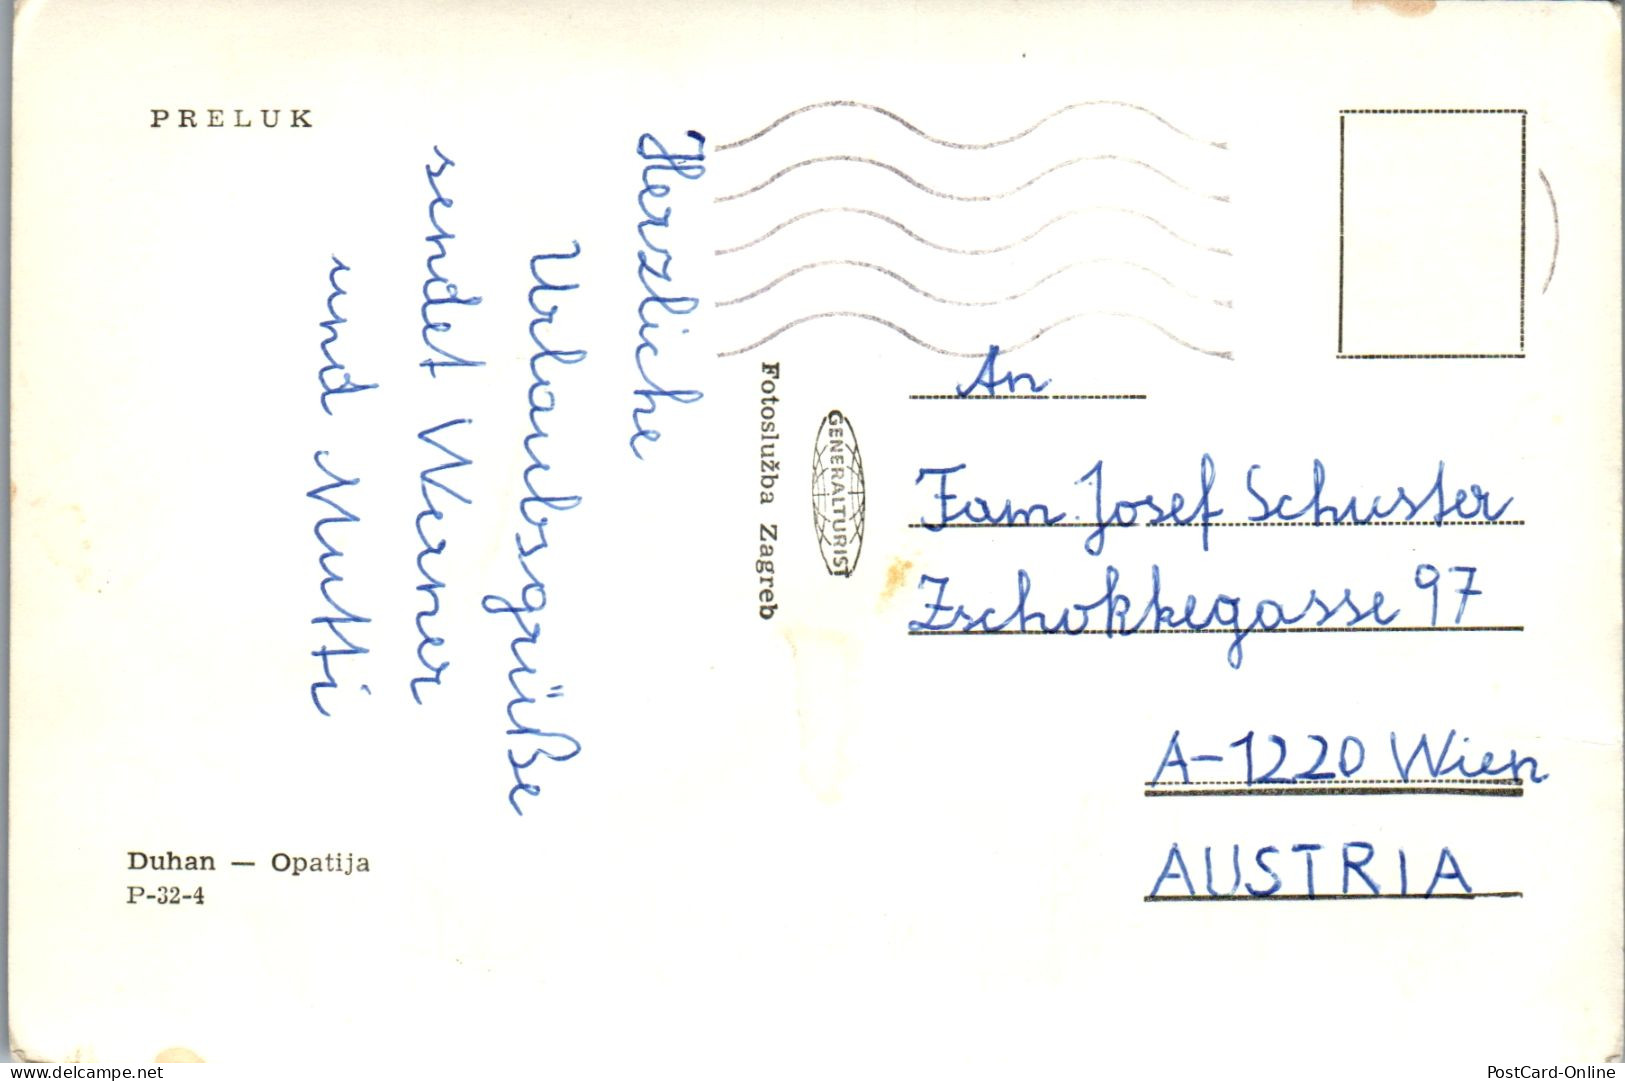 PRELUK
Herzliche
Urlaubsgrüße
sendet Werner
und Mutti
Duhan — Opatija
P-32-4
Fotoslužba Zagreb
GENERALTURIST
An
Fam. Josef Schuster
Zschokkegasse 97
A-1220 Wien
AUSTRIA
www.delcampe.net
PostCard-Online